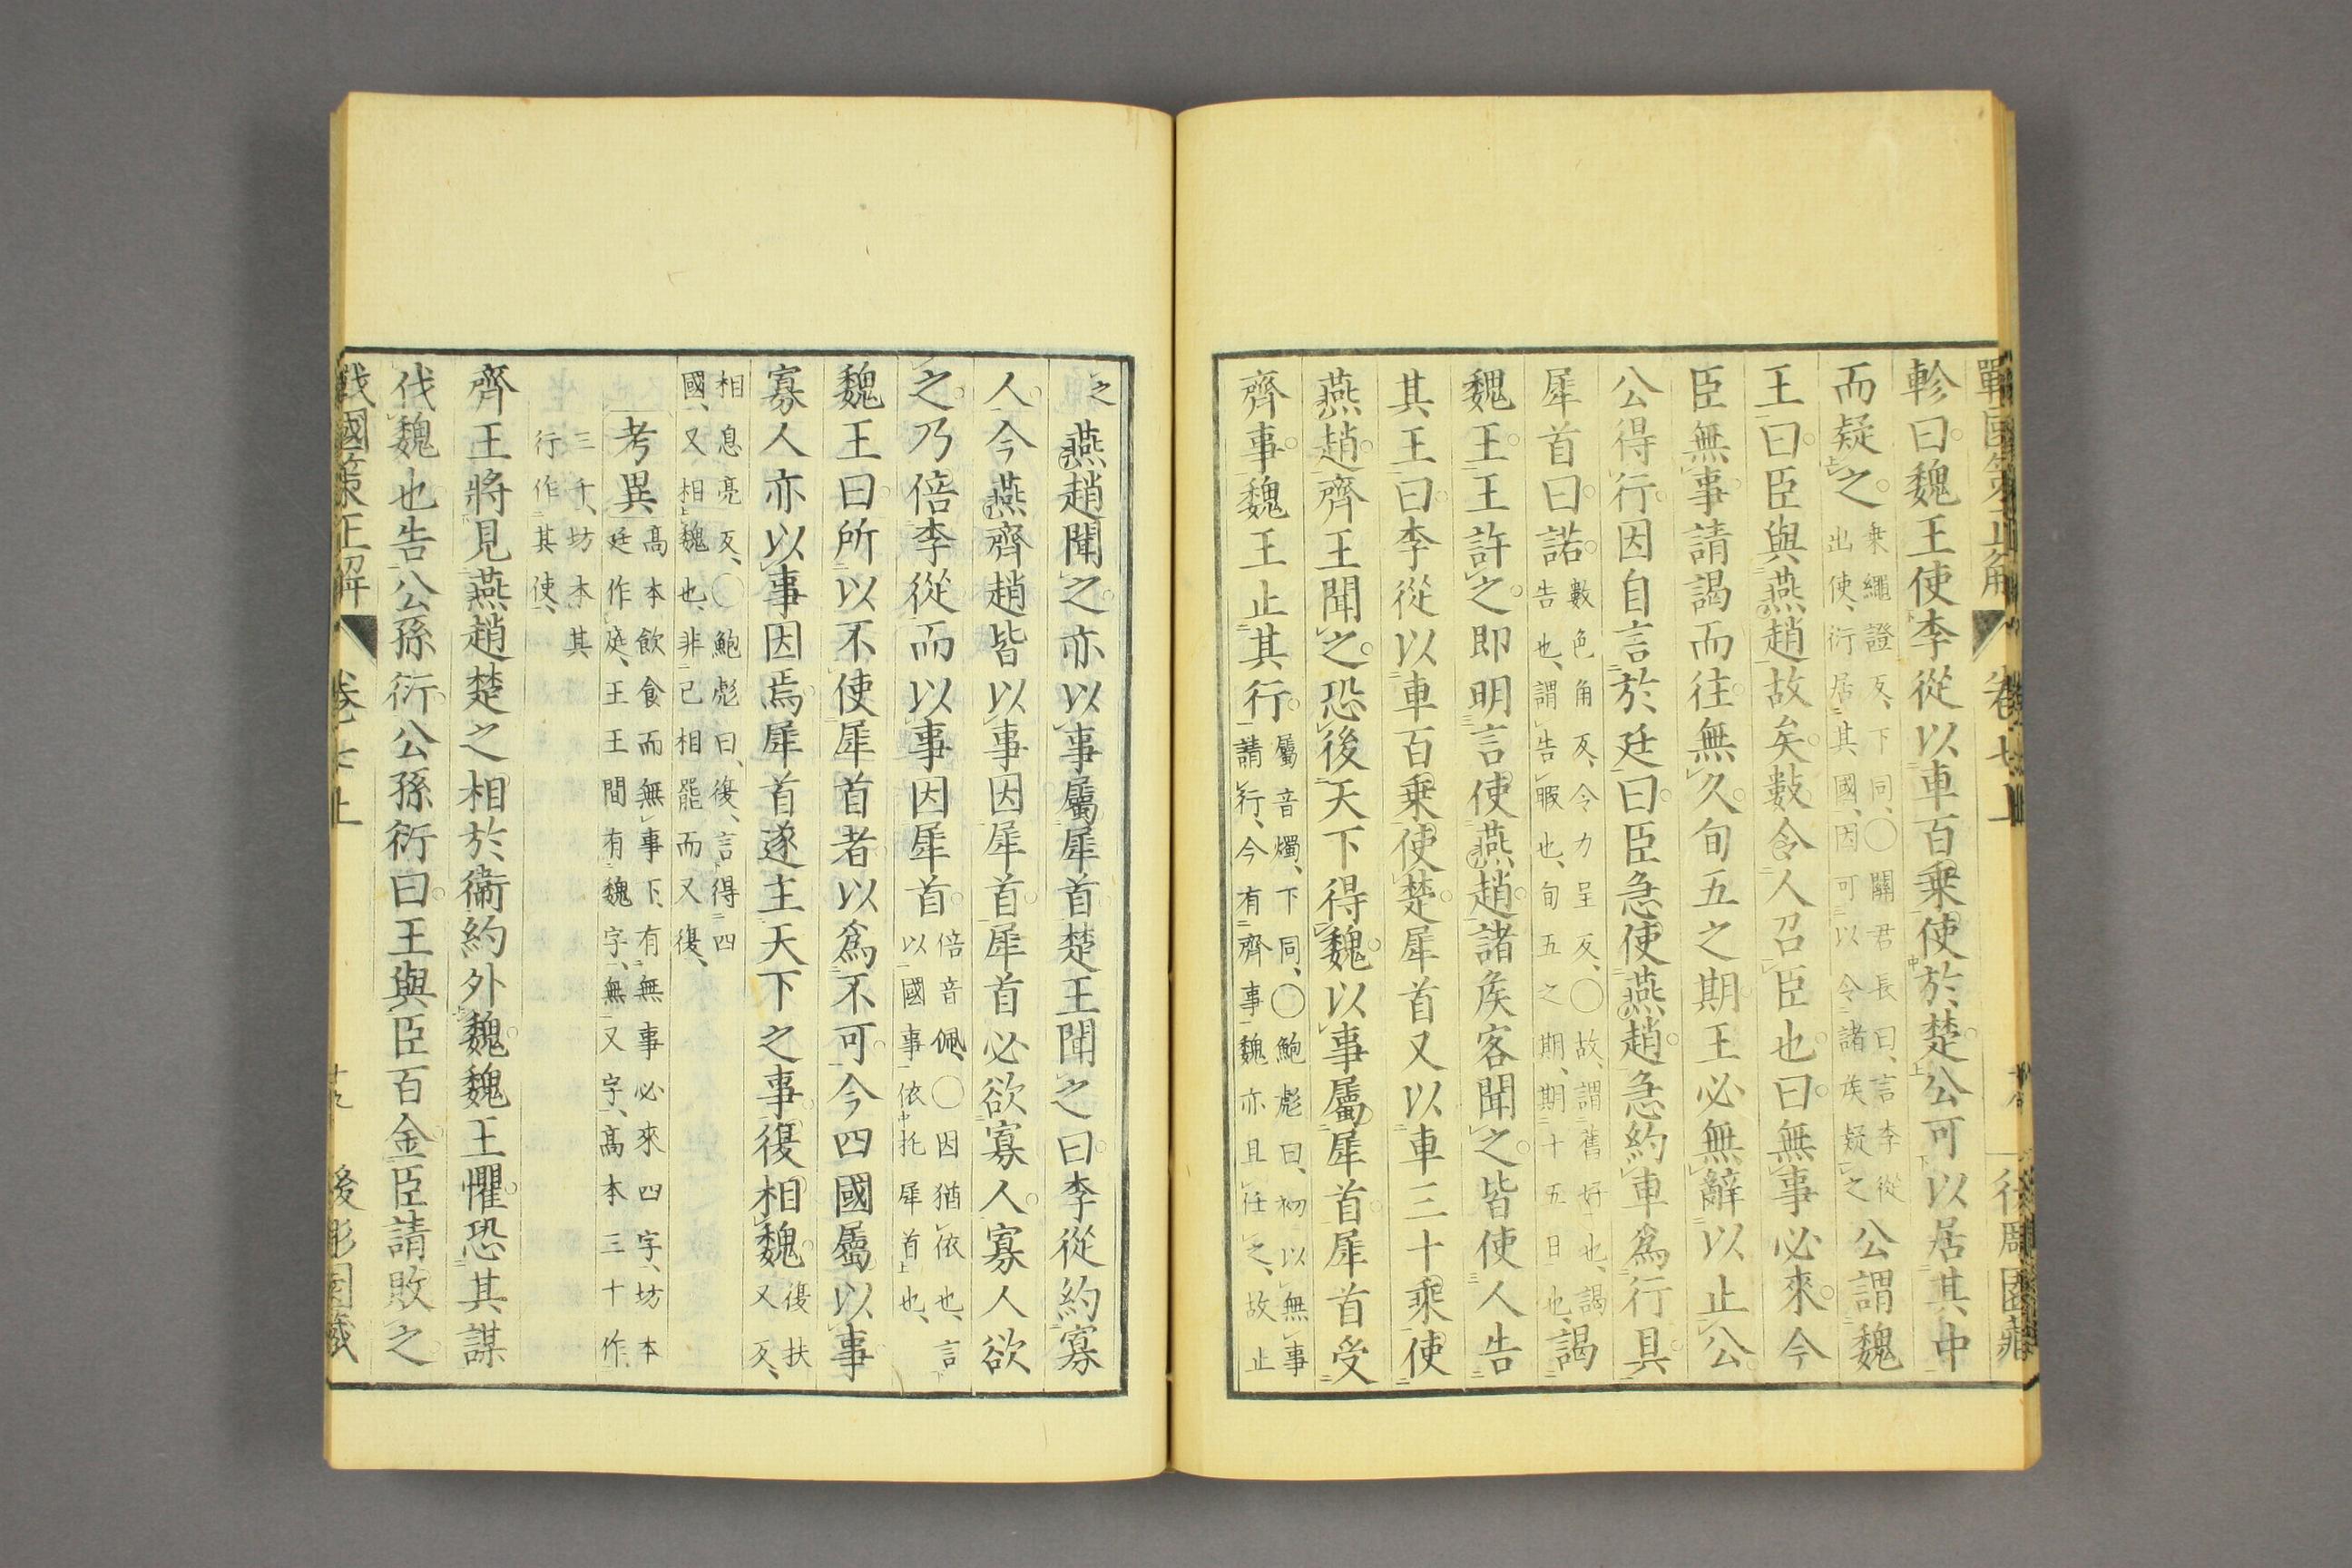 戰國策正解 卷七上 後彫園藏
軫曰魏王使李從以車百乘使於楚公可以居其中
而疑之乘繩證反、下同、○關君長曰、言李從出使、衍居其國、因可以令諸侯疑之公謂魏
王曰臣與燕趙故矣數令人召臣也曰無事必來今
臣無事請謁而往無久旬五之期王必無辭以止公
公得行因自言於廷曰臣急使燕趙急約車爲行具
犀首曰諾數色角反、令力呈反、○故、謂舊好也、謁告也、謂告暇也、旬五之期、期十五日也、謁
魏王王許之即明言使燕趙諸侯客聞之皆使人告
其王曰李從以車百乘使楚犀首又以車三十乘使
燕趙齊王聞之恐後天下得魏以事屬犀首犀首受
齊事魏王止其行屬音燭、下同、○鮑彪曰、初以無事請行、今有齊事魏亦且任之、故止
之燕趙聞之亦以事屬犀首楚王聞之曰李從約寡
人今燕齊趙皆以事因犀首犀首必欲寡人寡人欲
之乃倍李從而以事因犀首倍音佩、○因猶依也、言以國事依托犀首也、
魏王曰所以不使犀首者以爲不可今四國屬以事
寡人亦以事因焉犀首遂主天下之事復相魏復扶又反、
相息亮反、○鮑彪曰、復、言得四國、又相魏也、非己相罷而又復、
考異高本飲食而無事下、有無事必來四字、坊本廷作庭、王王間有魏字、無又字、高本三十作
三千、坊本其行作其使、
齊王將見燕趙楚之相於衞約外魏魏王懼恐其謀
伐魏也告公孫衍公孫衍曰王與臣百金臣請敗之
戰國策正解 卷七上 後彫園藏